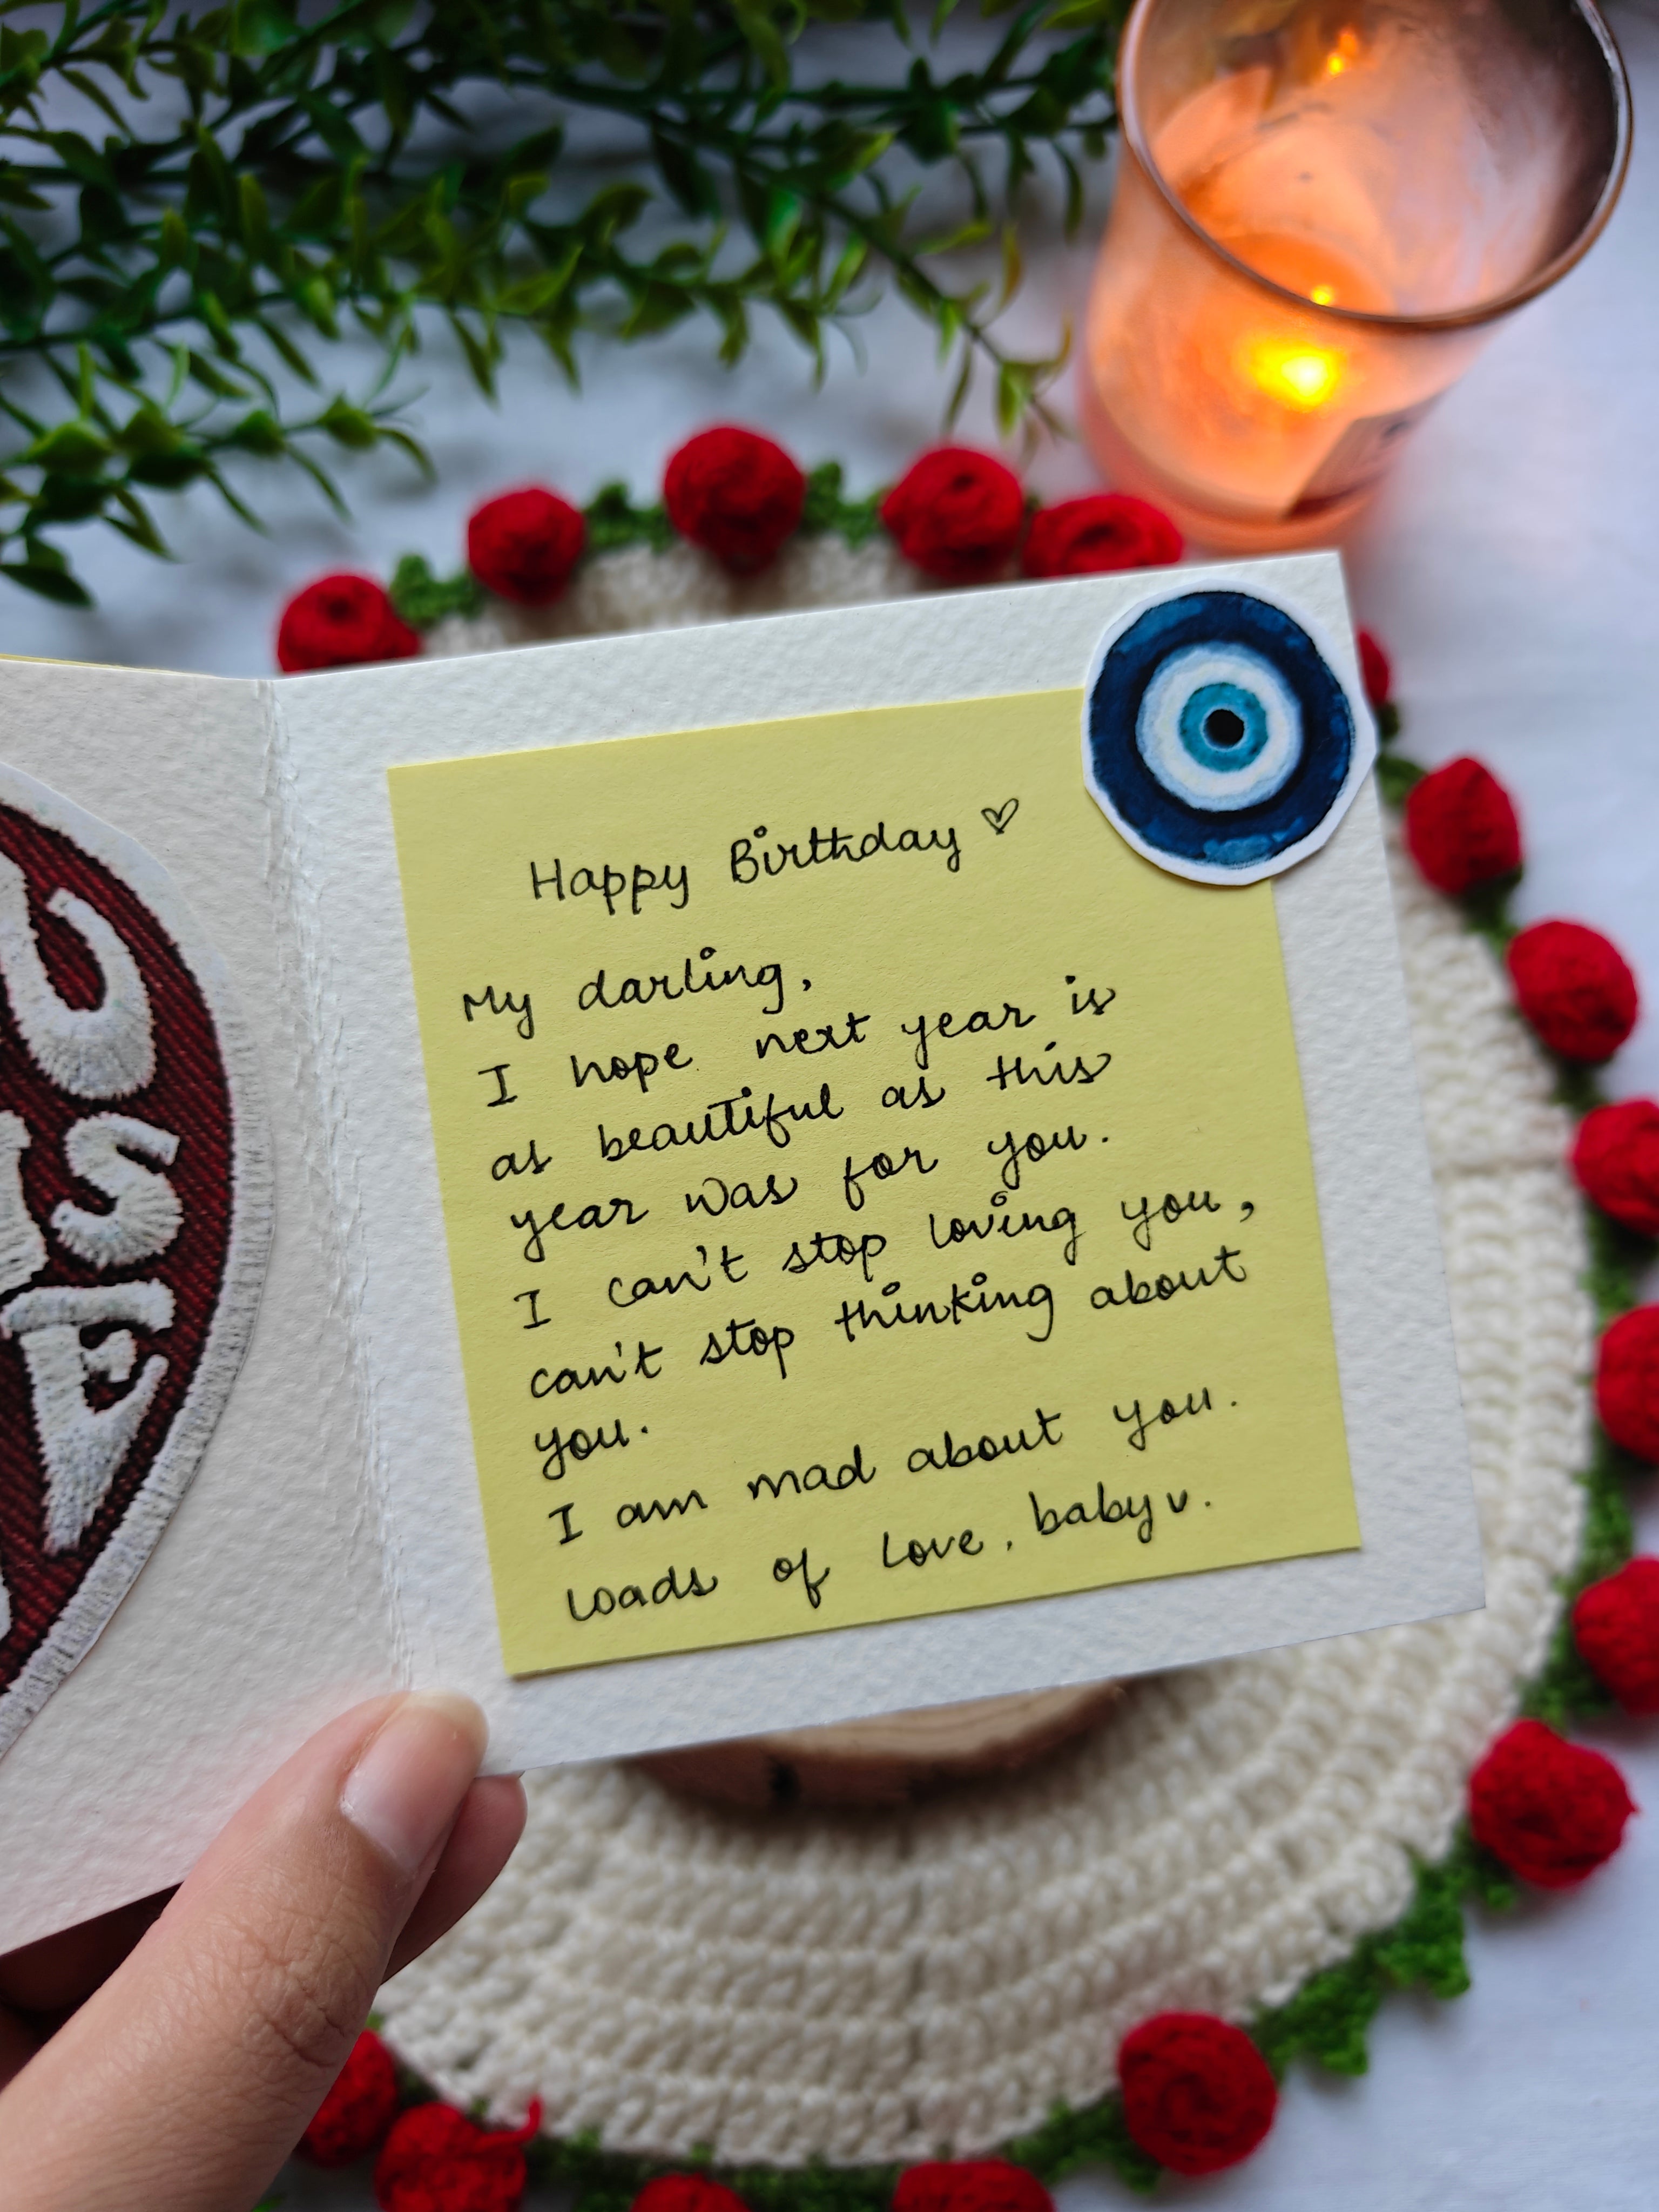 Happy Birthday ♡
My darling,
I hope next year is
as beautiful as this
year was for you.
I can't stop loving you,
can't stop thinking about
you.
I am mad about you.
Loads of love, baby v.